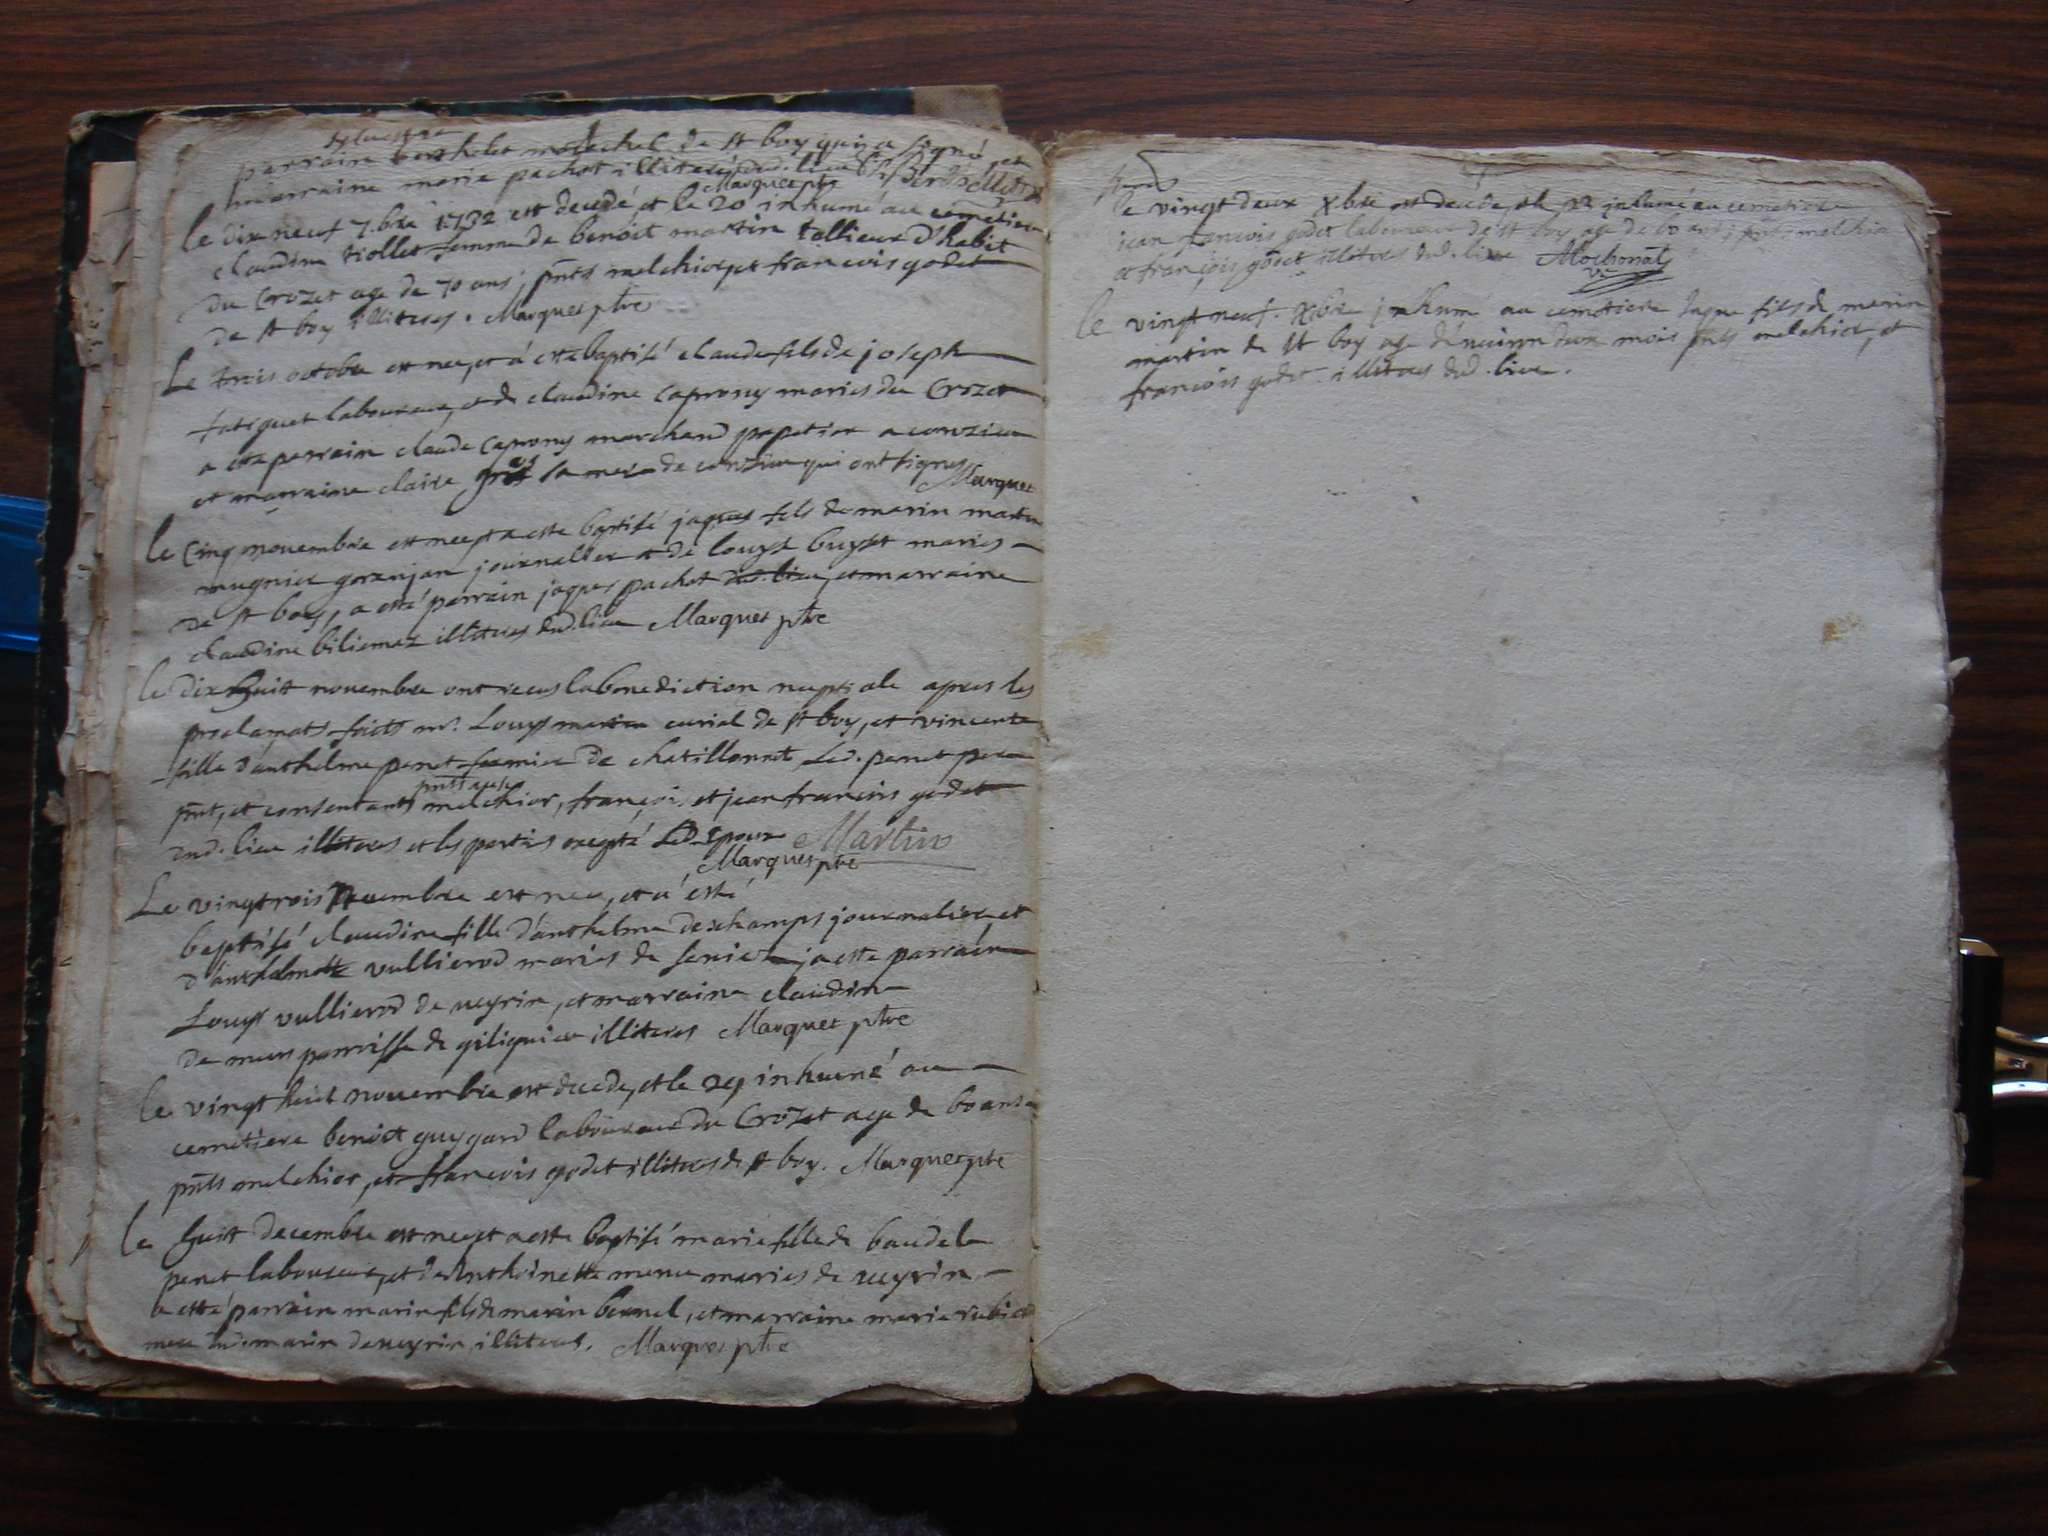 sylvestre
parrain berthelet mareschal de st boy qui a signé, et
marraine marie pachot illiteré dud. lieu
Marquet ptre
le dix neuf 7.bre 1732 est decedé et le 20 inhumé au cemetiere
claudine tiollet femme de benoit martin tallieur d'habit
du Crozet age de 70 ans, pnts melchior, et francois godet
de st boy illiteres. Marquet ptre
Le trois octobre est ne, et á esté baptisé claude fils de joseph
laboureur, et de claudine caprony mariés du Crozet
a esté parrain claude caprony marchand papetier a
et marraine claire sa mere de qui ont signes
Marquet
le Cinq novembre est ne, et a esté baptisé jaques fils de marin martin
mugnier granjan journallier et de louyse buysset mariés
de st boy, a esté parrain jaques pachot dud. lieu, et marraine
claudine biliemaz illiteres dud. lieu Marquet ptre
le dix huitt novembre ont receus la benediction nuptiale apres les
proclamats faits mr. Louys martin curial de st boy, et vincente
fille d'anthelme penet fermier de chatillonnet, led. penet pere
pnts aussy
pnt, et consentant melchior, françois et jean francois godet
dud. lieu illiteres et les partis excepté led. Epoux Martin
Marquet ptre
Le vingtrois novembre est nee, et a esté
baptisé claudine fille d'anthelme deschamps journalier, et
d'anthelmette vullierod mariés de a esté parrain
Louys vullierod de veyrin, et marraine claudine
de murs parroisse de illiteres Marquet ptre
le vingt huit novembre est decedé, et le 29 inhumé au
cemetiere benoit guygard laboureur du Crozet age de 60 ans
pnts melchior, et francois godet illiteres de st boy. Marquet ptre
le huitt decembre est nee, et a esté baptisé marie fille de baudele
penet laboureur, et d'anthoinette mariés de veyrin
a esté parrain marin fils de marin bernel, et marraine marie
mere dud. marin de veyrin illiteres. Marquet ptre
le vingt deux xbre est decede, et le 23 inhumé au cemetiere
jean francois godet laboureur de st boy age de 60 ans, pnts melchior
et françois godet illiteres dud. lieu
le vingt neuf xbre inhumé au cemetiere fils de marin
martin de st boy agé d'environ deux mois pnts melchior, et
francois godet illiteres dud. lieu.